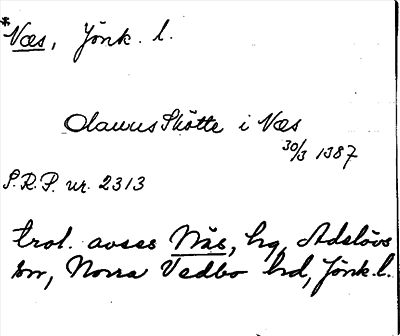 *Næs, Jönk. l.
Olauus Skötte i Næs
30/3 1387
S.R.P. nr. 2313
trol. avses Näs, hg, Adelövs
sn, Norra Vedbo hd, Jönk. l.